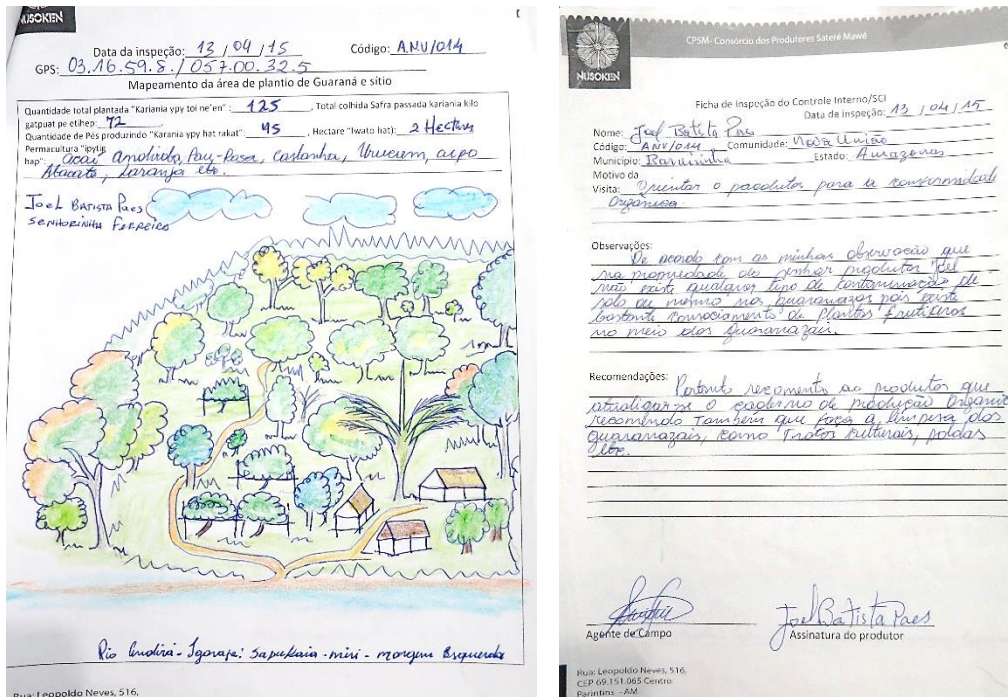 NUSOKEN
Data da inspeção: 13 / 04 / 15 Código: ANV/014
GPS: 03.16.59.8. / 057.00.32.5
Mapeamento da área de plantio de Guaraná e sítio
Quantidade total plantada "Kariania ypy toi ne'en": 125, Total colhida Safra passada kariania kilo
gatpuat pe etihep: 72
Quantidade de Pés produzindo "Karania ypy hat rakat": 45, Hectare "Iwato hat): 2 Hectares
Permacultura "ipytig
hap": açaí andiroba, Pau-Rosa, Castanha, Urucum,
Abacate, Laranja etc.
JOEL BATISTA PAES
SENHORINHA FERREIRA
Rio Andirá - Igarapé: Sapukaia-miri - margem Esquerda
Rua: Leopoldo Neves, 516,
NUSOKEN
CPSM- Consórcio dos Produtores Sateré Mawé
Ficha de Inspeção do Controle Interno/SCI
Data da inspeção: 13 / 04 / 15
Nome: Joel Batista Paes
Código: ANV/014 Comunidade: Nova União
Município: Barreirinha Estado: Amazonas
Motivo da
Visita: Orientar o produtos para a conformidade
Orgânica.
Observações:
De acordo com as minhas observação que
na propriedade do senhor produtos Joel
não existe qualquer tipo de contaminação de
solo ou mesmo nos guaranazas pois existe
bastante consociamento de plantas frutiferas
no meio dos Guaranazais.
Recomendações:
Portanto recomento ao produtos que
o caderno de produção Organic
recomendo Também que faça a limpeza dos
guaranazais, como Tratos culturais, podas
etc.
Agente de Campo
Joel Batista Paes
Assinatura do produtor
Rua: Leopoldo Neves, 516,
CEP 69.151.065 Centro
Parintins - AM